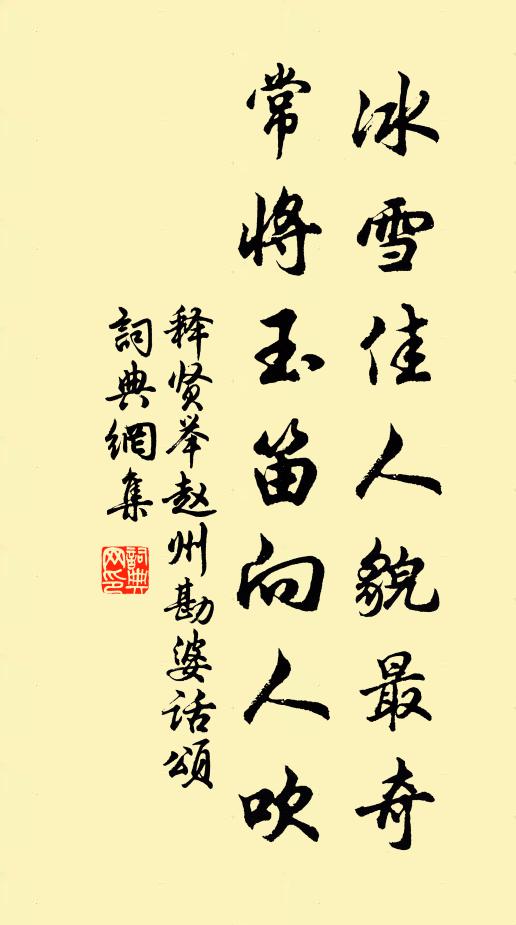 冰雪佳人貌最奇
常将玉笛向人吹
释贤举赵州勘婆话颂
詞典網集
詞典网印